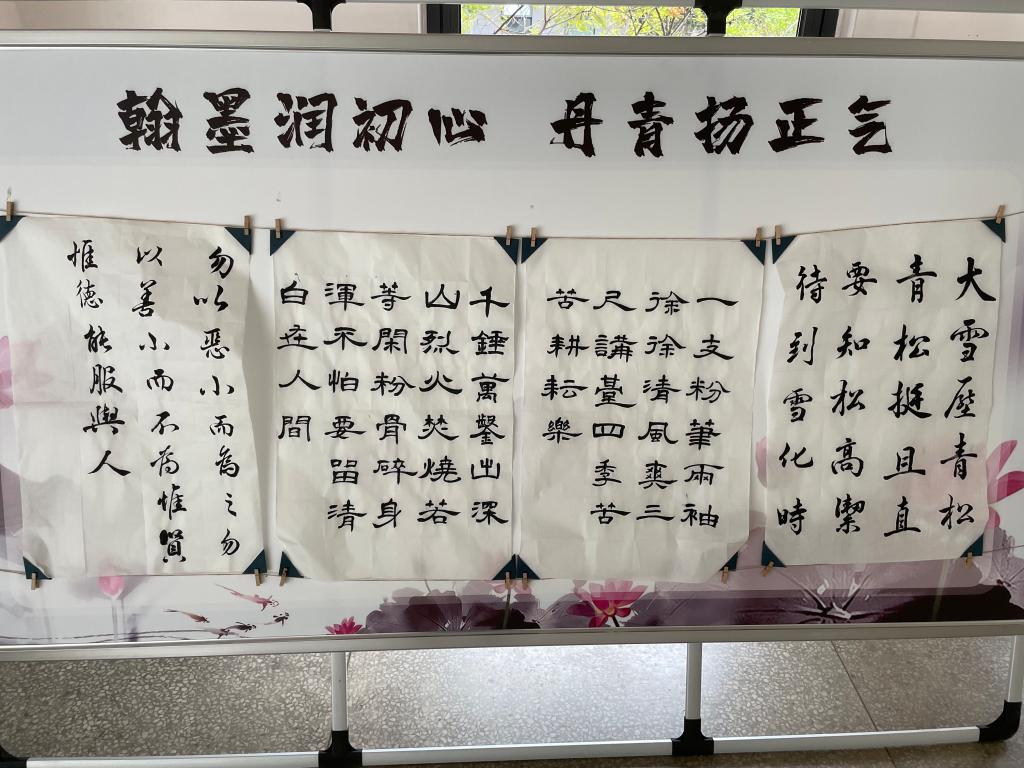 翰墨润初心 丹青扬正气
大雪压青松
青松挺且直
要知松高潔
待到雪化時
一支粉筆兩袖
徐徐清風爽三
尺講臺四季苦
苦耕耘樂
千錘萬鑿出深
山烈火焚燒若
等閑粉骨碎身
渾不怕要留清
白在人間
勿以惡小而為之勿
以善小而不為惟賢
惟德能服與人